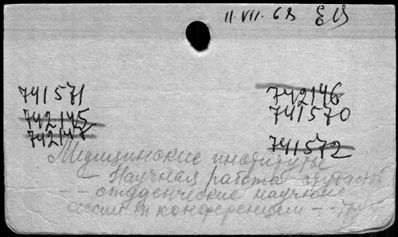 11.VII.68
741571
742145
742147
742146
741570
741572
Медицинские институты
- Научная работа студентов
- студенческие научные
и конференции -